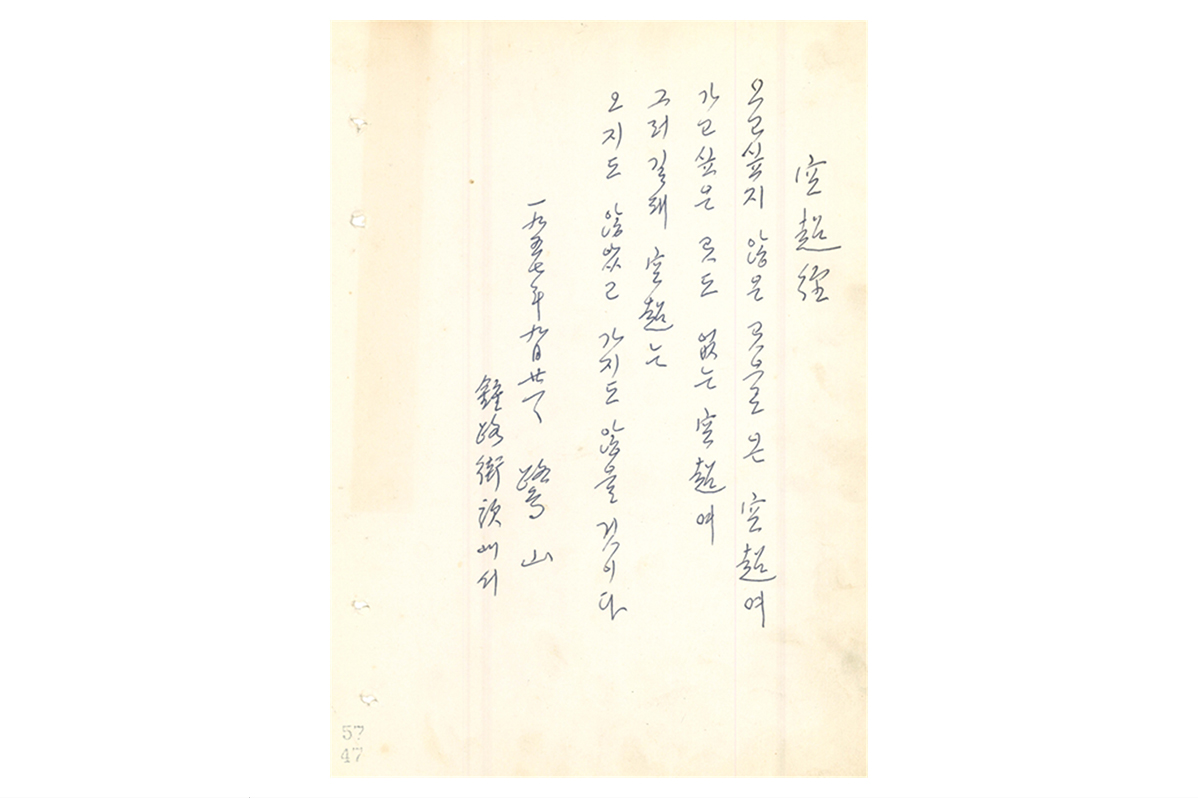 空超經
오고싶지 않은 곳으로 온 空超여
가고 싶은 곳도 없는 空超여
그러길래 空超는
오지도 않았고 가지도 않을 것이다
一九五七年 鷺山
鍾路街頭에서
57
47